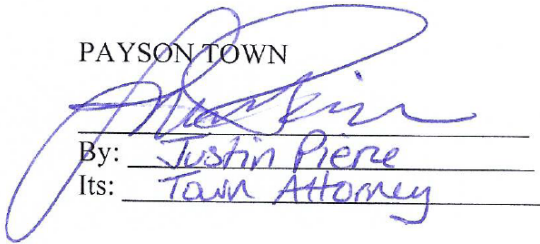 PAYSON TOWN
By: Justin Pierce
Its: Town Attorney